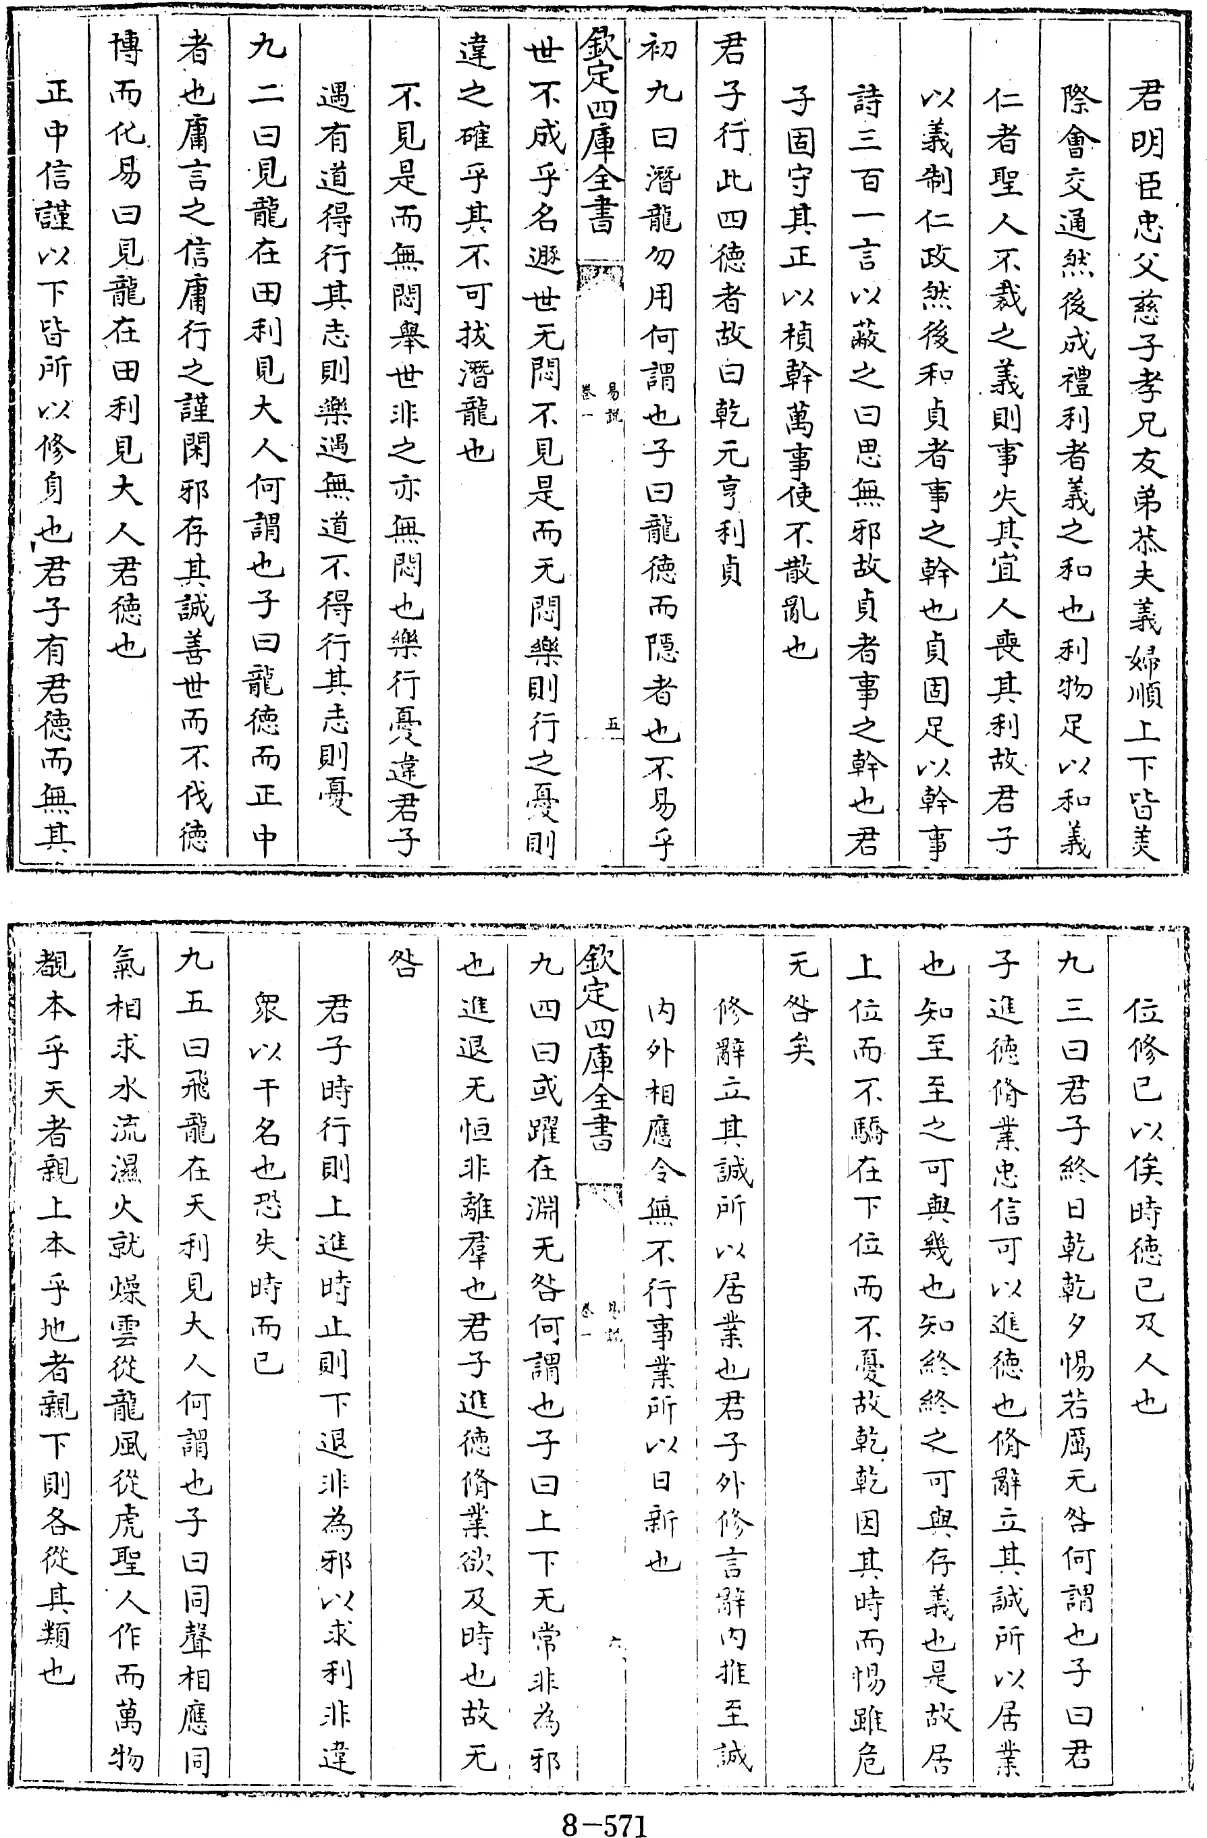 君明臣忠父慈子孝兄友弟恭夫義婦順上下皆美
際會交通然後成禮利者義之和也利物足以和義
仁者聖人不裁之義則事失其宜人喪其利故君子
以義制仁政然後和貞者事之幹也貞固足以幹事
詩三百一言以蔽之曰思無邪故貞者事之幹也君
子固守其正以楨幹萬事使不散亂也
君子行此四徳者故曰乾元亨利貞
初九曰潛龍勿用何謂也子曰龍徳而隠者也不易乎
欽定四庫全書
易說
卷一
五
世不成乎名遯世无悶不見是而无悶樂則行之憂則
違之確乎其不可拔潛龍也
不見是而無悶舉世非之亦無悶也樂行憂違君子
遇有道得行其志則樂遇無道不得行其志則憂
九二曰見龍在田利見大人何謂也子曰龍徳而正中
者也庸言之信庸行之謹閑邪存其誠善世而不伐徳
博而化易曰見龍在田利見大人君徳也
正中信謹以下皆所以修身也君子有君徳而無其
位修已以俟時徳已及人也
九三曰君子終日乾乾夕惕若厲无咎何謂也子曰君
子進徳脩業忠信可以進徳也脩辭立其誠所以居業
也知至至之可與幾也知終終之可與存義也是故居
上位而不驕在下位而不憂故乾乾因其時而惕雖危
无咎矣
修辭立其誠所以居業也君子外修言辭内推至誠
内外相應令無不行事業所以日新也
欽定四庫全書
易說
卷一
六
九四曰或躍在淵无咎何謂也子曰上下无常非為邪
也進退无恒非離羣也君子進徳脩業欲及時也故无
咎
君子時行則上進時止則下退非為邪以求利非違
衆以干名也恐失時而已
九五曰飛龍在天利見大人何謂也子曰同聲相應同
氣相求水流濕火就燥雲從龍風從虎聖人作而萬物
覩本乎天者親上本乎地者親下則各從其類也
8-571